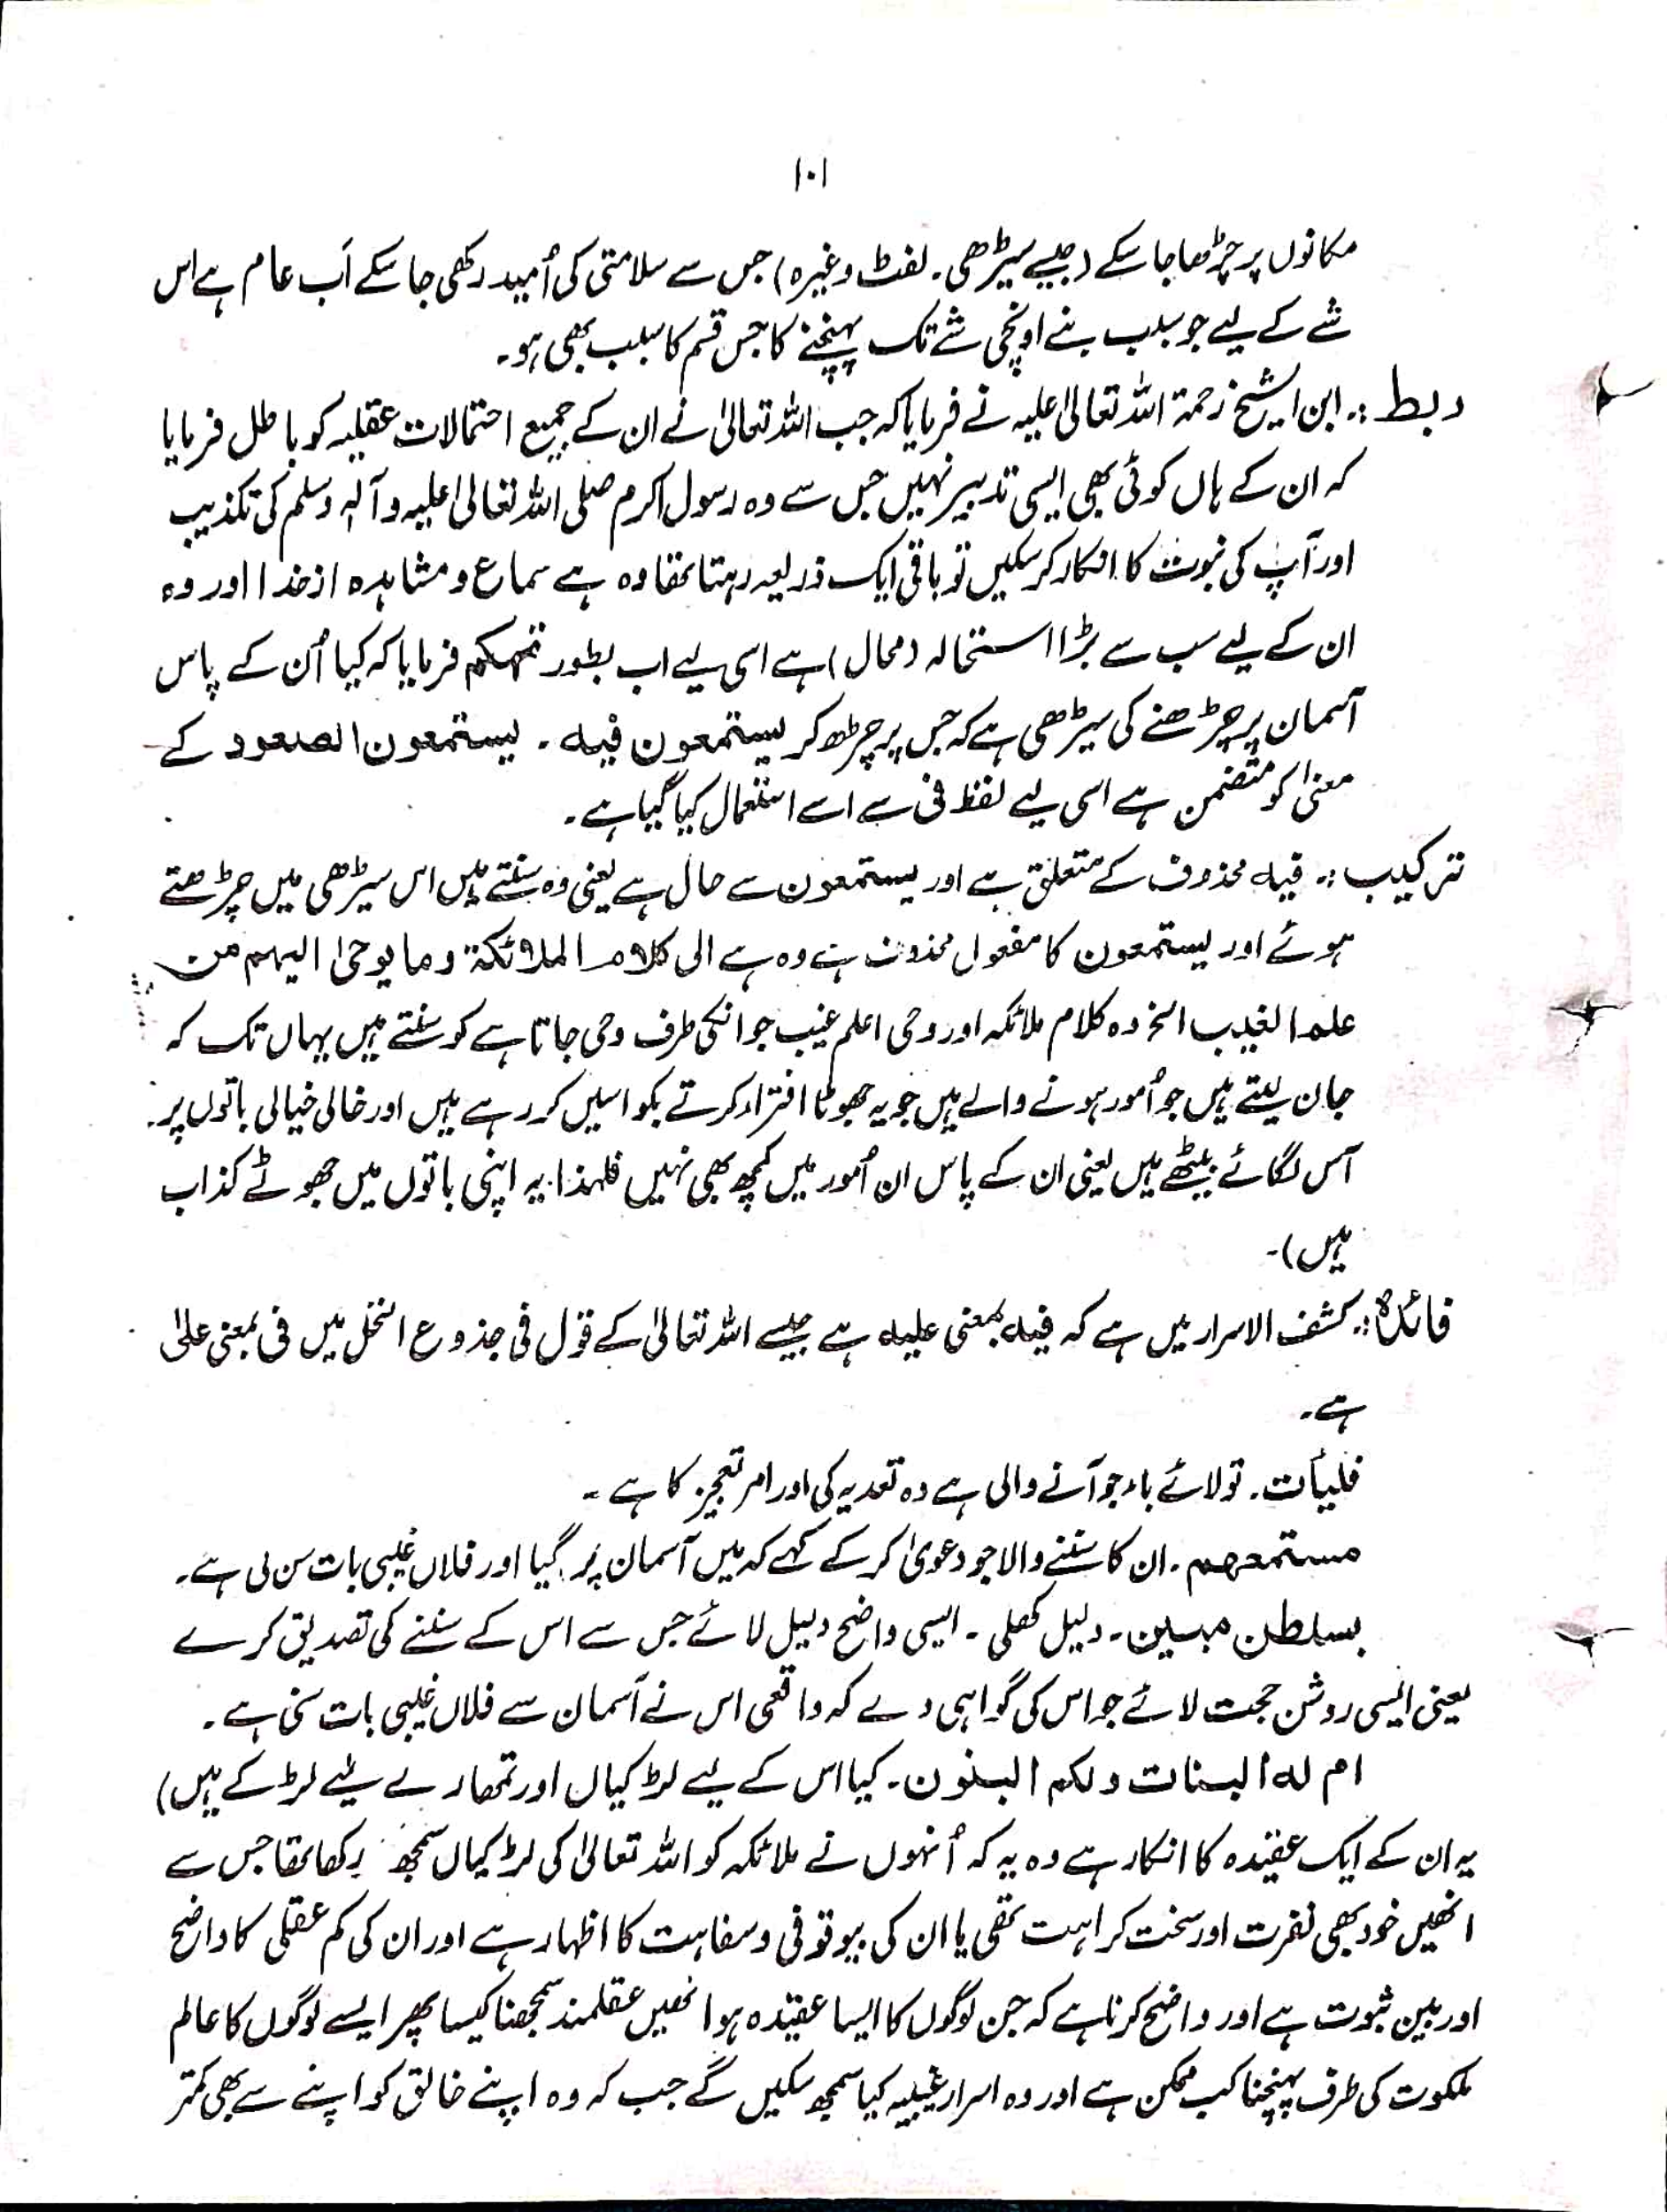 ۱۰۱
مکانوں پر چڑھا جا سکے (جیسے سیڑھی۔ لفٹ وغیرہ) جس سے سلامتی کی اُمید رکھی جا سکے اَب عام ہے اس
شے کے لیے جو سبب بنے اونچی شے تک پہنچنے کا جس قسم کا سبب بھی ہو۔
ربط :۔ ابن الشیخ رحمۃ اللہ تعالیٰ علیہ نے فرمایا کہ جب اللہ تعالیٰ نے ان کے جمیع احتمالات عقلیہ کو باطل فرمایا
کہ ان کے ہاں کوئی بھی ایسی تدبیر نہیں جس سے وہ رسول اکرم صلی اللہ تعالیٰ علیہ و آلہٖ وسلم کی تکذیب
اور آپ کی نبوت کا انکار کر سکیں تو باقی ایک ذریعہ رہتا تھا وہ ہے سماع و مشاہدہ از خدا اور وہ
ان کے لیے سب سے بڑا استحالہ (محال) ہے اسی لیے اب بطور تہکم فرمایا کہ کیا اُن کے پاس
آسمان پر چڑھنے کی سیڑھی ہے کہ جس پر چڑھ کر یستمعون فیہ ۔ یستمعون الصعود کے
معنیٰ کو متضمن ہے اسی لیے لفظ فی سے اسے استعمال کیا گیا ہے۔
ترکیب :۔ فیہ محذوف کے متعلق ہے اور یستمعون سے حال ہے یعنی وہ سنتے ہیں اس سیڑھی میں چڑھتے
ہوئے اور یستمعون کا مفعول محذوف ہے وہ ہے الی کلام الملائکۃ وما یوحیٰ الیہم من
علم الغیب الخ وہ کلام ملائکہ اور وحی اعلم غیب جو انکی طرف وحی جاتا ہے کو سنتے ہیں یہاں تک کہ
جان لیتے ہیں جو اُمور ہونے والے ہیں جو یہ جھوٹا افتراء کرتے بکواسیں کر رہے ہیں اور خالی خیالی باتوں پر
آس لگائے بیٹھے ہیں یعنی ان کے پاس ان اُمور میں کچھ بھی نہیں فلہذا یہ اپنی باتوں میں جھوٹے کذاب
ہیں)۔
فائدہ :۔ کشف الاسرار میں ہے کہ فیہ بمعنی علیہ ہے جیسے اللہ تعالیٰ کے قول فی جذوع النخل میں فی بمعنی علیٰ
ہے۔
فلیأت۔ تو لائے باء جو آنے والی ہے وہ تعدیہ کی اور امر تعجیز کا ہے۔
مستمعھم۔ ان کا سننے والا جو دعویٰ کر کے کہے کہ میں آسمان پر گیا اور فلاں غیبی بات سن لی ہے۔
بسلطٰن مبین۔ دلیل کھلی۔ ایسی واضح دلیل لائے جس سے اس کے سننے کی تصدیق کرے
یعنی ایسی روشن حجت لائے جو اس کی گواہی دے کہ واقعی اس نے آسمان سے فلاں غیبی بات سنی ہے۔
ام لہ البنات ولکم البنون۔ کیا اس کے لیے لڑکیاں اور تمھارے لئے لڑکے ہیں)
یہ ان کے ایک عقیدہ کا انکار ہے وہ یہ کہ اُنہوں نے ملائکہ کو اللہ تعالیٰ کی لڑکیاں سمجھ رکھا تھا جس سے
انھیں خود بھی نفرت اور سخت کراہت تھی یا ان کی بیوقوفی و سفاہت کا اظہار ہے اور ان کی کم عقلی کا واضح
اور بین ثبوت ہے اور واضح کرنا ہے کہ جن لوگوں کا ایسا عقیدہ ہو انھیں عقلمند سمجھنا کیسا پھر ایسے لوگوں کا عالم
ملکوت کی طرف پہنچنا کب ممکن ہے اور وہ اسرار غیبیہ کیا سمجھ سکیں گے جب کہ وہ اپنے خالق کو اپنے سے بھی کمتر